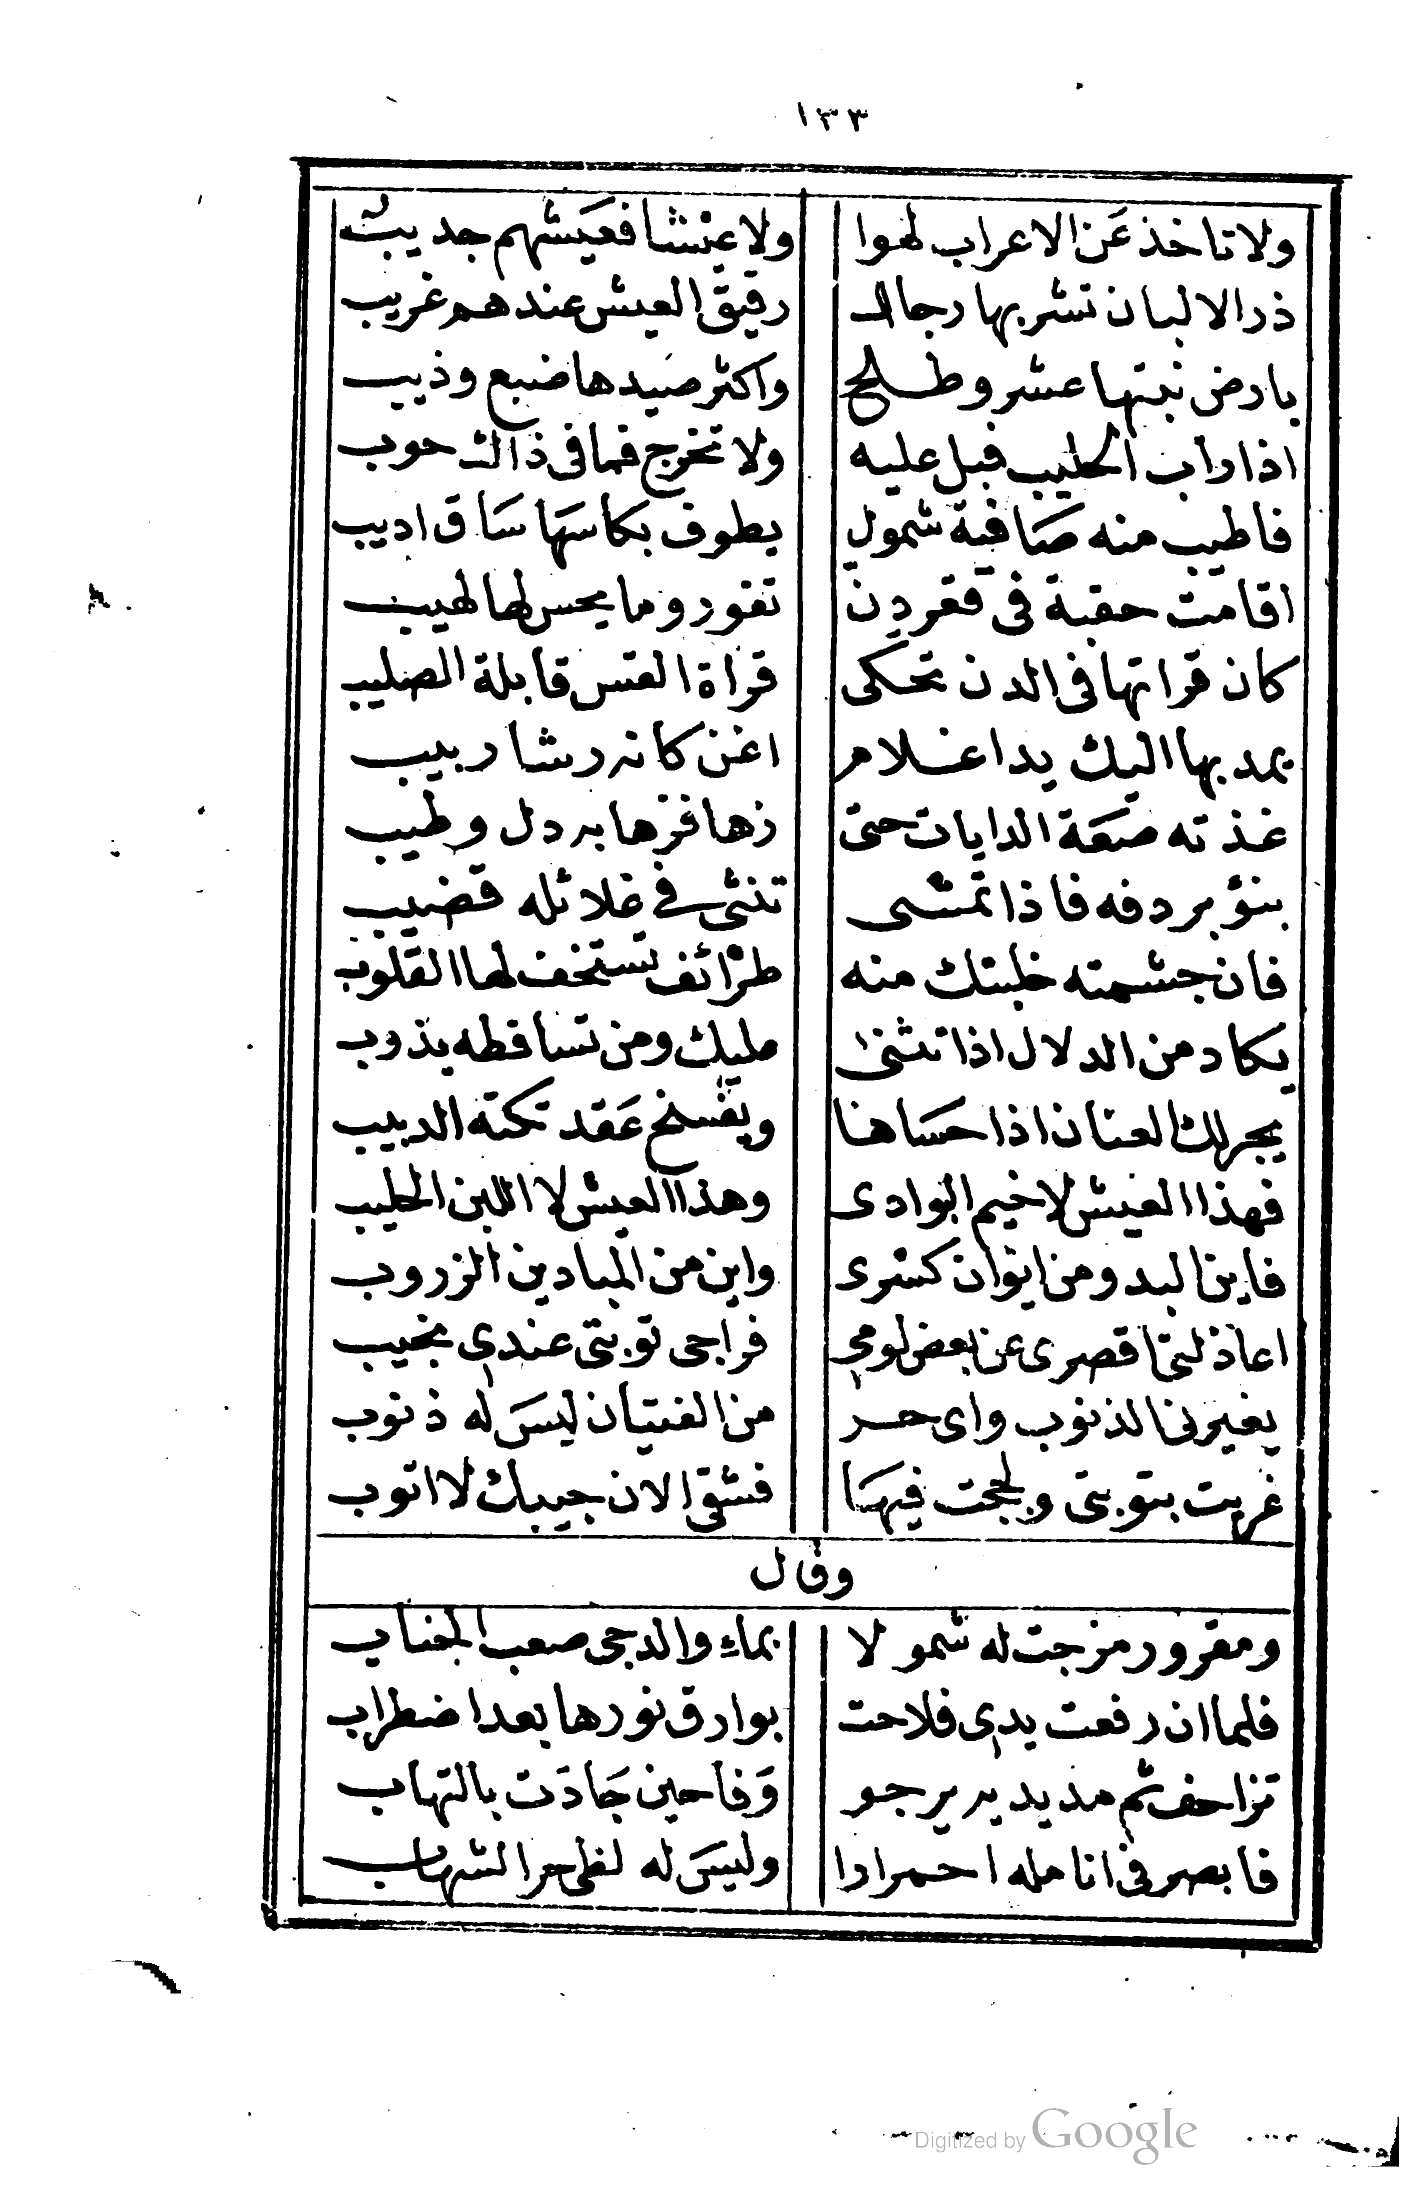 ١٣٣
ولا تاخذ عَن الاعراب لهوا ولا عيشا فعَيشهم جديب
ذر الالبان تشربها رجال رقيق العيش عندهم غريب
بارض نبتها عشر وطلح واكثر صيدها ضبع وذيب
اذا راب الحليب فبل عليه ولا تخرج فما فى ذاك حوب
فاطيب منه صَافية شمول يطوف بكاسهَا سَاق اديب
اقامت حقبة فى قعر دن تفور وما يحس لها لهيب
كان قراتها فى الدن تحكى قراة القس قابلة الصليب
يمد بها اليك يدا غلام اغن كانه رشا ربيب
غذته صنعة الدايات حتى زها فزها به دل وطيب
ينؤ بردفه فاذا تمشى تنثى فى غلائله قضيب
فان جشمته خلبتك منه طرائف تستخف لها القلوب
يكاد من الدلال اذا تثنى عليك ومن تساقطه يذوب
يجر لك العنان اذا حسَاها ويفسخ عَقد تكته الدبيب
فهذا العيش لا خيم البوادى وهذا العيش لا اللبن الحليب
فاين البدو من ايوان كسرى واين من الميادين الزروب
اعاذلتى اقصرى عن بعض لومى فراجى توبتى عندى يخيب
يعيرنى الذنوب واى حر من الفتيان ليسَ له ذنوب
غريت بتوبتى ولججت فيهَا فشقى الان جيبك لا اتوب
وقال
ومقرور مزجت له شمولا بماء والدجى صعب الجناب
فلما ان رفعت يدى فلاحت بوارق نورها بعد اضطراب
تزاحف ثم مد يديه يرجو وَفا حين جَادَت بالتهاب
فابصر فى انامله احمرارا وليسَ له لظى حر الشهاب
Digitized by Google